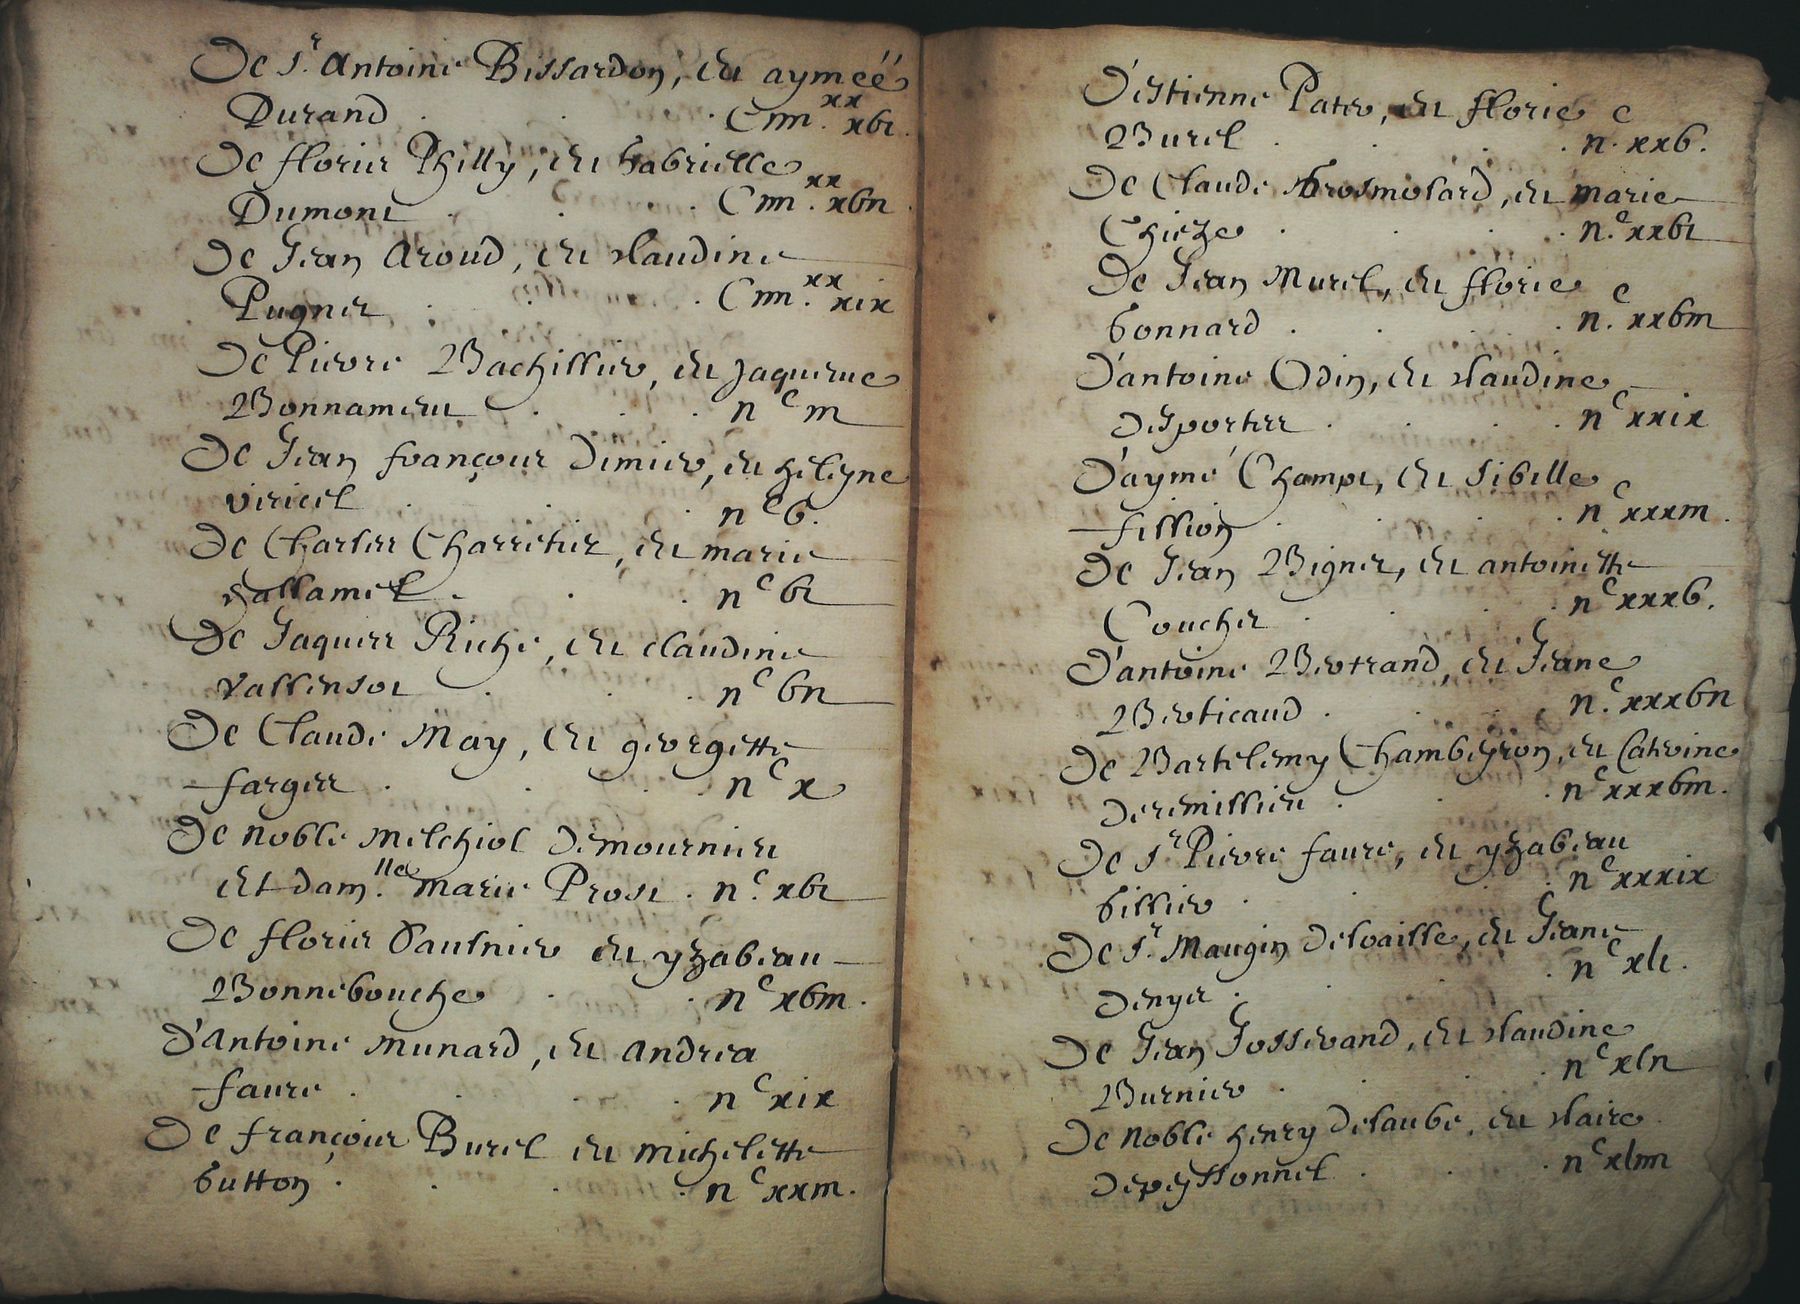 De Sr. Antoine Bissardon, et aymeé
Durand . . . Ciiii.xx xvi.
De floris Philly, et Gabrielle
Dumont . . . Ciiii.xx xvii
De Jean Aroud, et claudine
Pugnet . . . Ciiii.xx xix
De Pierre Bachillier, et Jaqueme
Bonnament . . . iic iii
De Jean françois Dimier, et heleyne
viricel . . . iic v.
De Charles Charretier, et marie
Gallamet . . . iic vi
De Jaques Riche, et claudine
Vallensot . . . iic vii
De Claude May, et georgette
farges . . . iic x
De noble Melchiol Demournieu
et dam.lle marie Prost . iic. xvi
De floris Saulnier et yzabeau
Bonnebouche . . iic xviii.
D'Antoine Munard, et Andrea
faure . . . iic xix
De françois Burel et michelette
Gutton . . . iic xxiii.
D'estienne Pater, et florie
Burel . . . iic. xxv.
De Claude Grosmolard, et marie
Chieze . . . iic. xxvi
De Jean Murel, et florie
Gonnard . . . iic. xxviii
D'antoine Odin, et claudine
desportes . . . iic xxix
D'aymé Champt, et Sibille
fillion . . . iic xxxiii.
De Jean Bignet, et antoinette
Couchet . . . iic xxxv.
D'antoine Bertrand, et Jeane
Berticaud . . . iic. xxxvii
De Bartelemy Chambeyron, et Catrine
deremillieu . . . iic xxxviii.
De Sr. Pierre faure, et yzabeau
Gillier . . . iic xxxix
De Sr. Maugin delvaille, et Jeane
denyet . . . iic xli.
De Jean Josserand, et claudine
Burnier . . . iic xlii
De noble henry delaube, et claire
depeyssonnel . . . iic xliiii